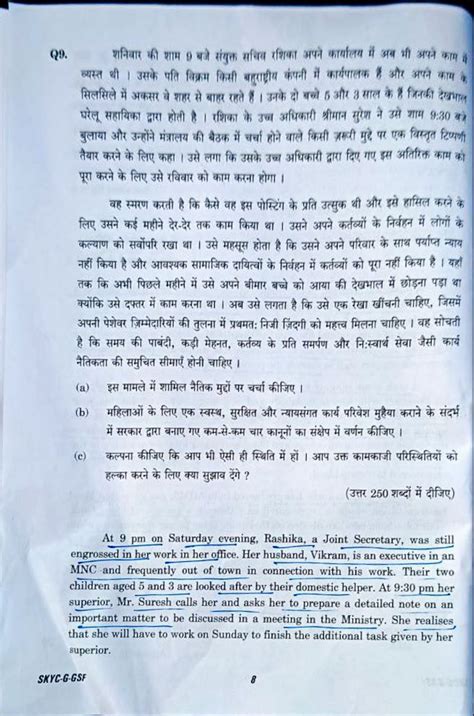 Q9. शनिवार की शाम 9 बजे संयुक्त सचिव रशिका अपने कार्यालय में अब भी अपने काम में
व्यस्त थी । उसके पति विक्रम किसी बहुराष्ट्रीय कंपनी में कार्यपालक हैं और अपने काम के
सिलसिले में अकसर वे शहर से बाहर रहते हैं । उनके दो बच्चे 5 और 3 साल के हैं जिनकी देखभाल
घरेलू सहायिका द्वारा होती है । रशिका के उच्च अधिकारी श्रीमान सुरेश ने उसे शाम 9:30 बजे
बुलाया और उन्होंने मंत्रालय की बैठक में चर्चा होने वाले किसी ज़रूरी मुद्दे पर एक विस्तृत टिप्पणी
तैयार करने के लिए कहा । उसे लगा कि उसके उच्च अधिकारी द्वारा दिए गए इस अतिरिक्त काम को
पूरा करने के लिए उसे रविवार को काम करना होगा ।
वह स्मरण करती है कि कैसे वह इस पोस्टिंग के प्रति उत्सुक थी और इसे हासिल करने के
लिए उसने कई महीने देर-देर तक काम किया था । उसने अपने कर्तव्यों के निर्वहन में लोगों के
कल्याण को सर्वोपरि रखा था । उसे महसूस होता है कि उसने अपने परिवार के साथ पर्याप्त न्याय
नहीं किया है और आवश्यक सामाजिक दायित्वों के निर्वहन में कर्तव्यों को पूरा नहीं किया है । यहाँ
तक कि अभी पिछले महीने में उसे अपने बीमार बच्चे को आया की देखभाल में छोड़ना पड़ा था
क्योंकि उसे दफ्तर में काम करना था । अब उसे लगता है कि उसे एक रेखा खींचनी चाहिए, जिसमें
अपनी पेशेवर ज़िम्मेदारियों की तुलना में प्रथमतः निजी ज़िंदगी को महत्त्व मिलना चाहिए । वह सोचती
है कि समय की पाबंदी, कड़ी मेहनत, कर्तव्य के प्रति समर्पण और निःस्वार्थ सेवा जैसी कार्य
नैतिकता की समुचित सीमाएँ होनी चाहिए ।
(a) इस मामले में शामिल नैतिक मुद्दों पर चर्चा कीजिए ।
(b) महिलाओं के लिए एक स्वस्थ, सुरक्षित और न्यायसंगत कार्य परिवेश मुहैया कराने के संदर्भ
में सरकार द्वारा बनाए गए कम-से-कम चार कानूनों का संक्षेप में वर्णन कीजिए ।
(c) कल्पना कीजिए कि आप भी ऐसी ही स्थिति में हों । आप उक्त कामकाजी परिस्थितियों को
हल्का करने के लिए क्या सुझाव देंगे ?
(उत्तर 250 शब्दों में दीजिए)
At 9 pm on Saturday evening, Rashika, a Joint Secretary, was still
engrossed in her work in her office. Her husband, Vikram, is an executive in an
MNC and frequently out of town in connection with his work. Their two
children aged 5 and 3 are looked after by their domestic helper. At 9:30 pm her
superior, Mr. Suresh calls her and asks her to prepare a detailed note on an
important matter to be discussed in a meeting in the Ministry. She realises
that she will have to work on Sunday to finish the additional task given by her
superior.
SKYC-G-GSF 8